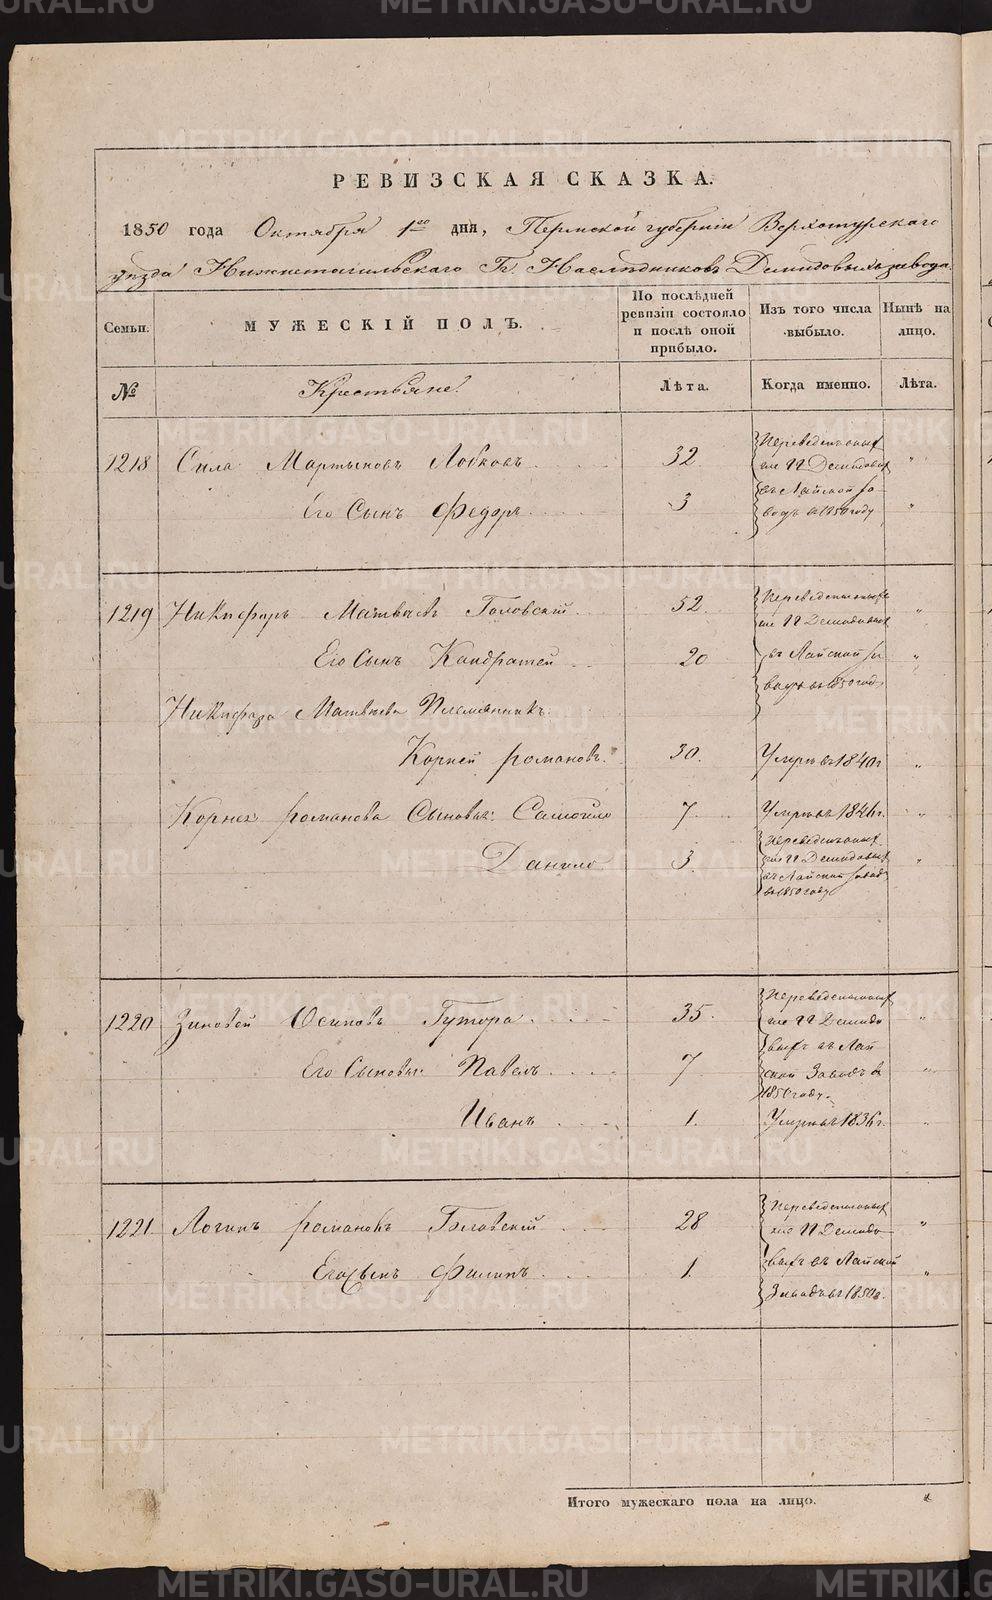 METRIKI.GASO-URAL.RU
РЕВИЗСКАЯ СКАЗКА.
1850 года Октября 1го дня, Пермской губерніи Верхотурскаго
уѣзда Нижнетагильскаго Гг. Наслѣдниковъ Демидовыхъ завода
Семьи. МУЖЕСКІЙ ПОЛЪ. По послѣдней ревизіи состояло и послѣ оной прибыло. Изъ того числа выбыло. Нынѣ на лицо.
№ Крестьяне. Лѣта. Когда именно. Лѣта.
1218 Сила Мартыновъ Лобковъ 32 Переведенъ
Гг Демидовыхъ
Его Сынъ Федоръ 3 въ Лайской за-
водъ въ 1850 году
1219 Никифоръ Матвѣевъ Головскій 52. Переведенъ
Гг Демидовыхъ
Его Сынъ Кондратей 20 въ Лайской за
водъ въ 1850 году
Никифора Матвѣева Племянникъ
Корней Романовъ 30. Умеръ въ 1840 г.
Корнея Романова Сыновья: Самойло 7 Умеръ въ 1846 г.
Данило 3. Переведенъ
Гг Демидовыхъ
въ Лайской заводъ
въ 1850 году
1220 Зиновей Осиповъ Гутора 35. Переведенъ
Гг Демидо
Его Сыновья: Павелъ 7 выхъ въ Лай
ской Заводъ въ
1850 году.
Иванъ 1. Умеръ въ 1836 г.
1221 Логинъ Романовъ Головскій 28 Переведенъ
Гг Демидо
Его Сынъ Филипъ 1 выхъ въ Лайской
Заводъ въ 1850 г.
Итого мужескаго пола на лицо.